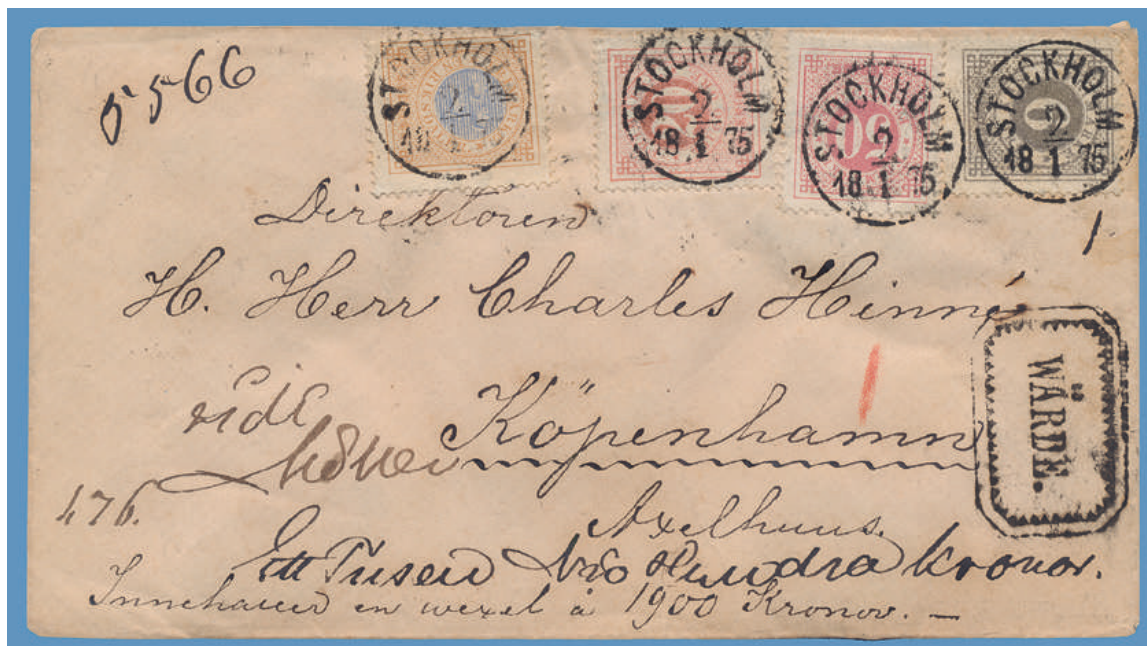 5566
STOCKHOLM
2
1
STOCKHOLM
2
18 1 75
STOCKHOLM
2
18 1 75
STOCKHOLM
2
18 1 75
20
20
6
Direktören
H. Herr Charles Hinné
1
Köpenhamn
WÄRDE.
476.
Axelhuus.
Ett Tusen Nio Hundra kronor.
Innehåller en wexel à 1900 Kronor. —